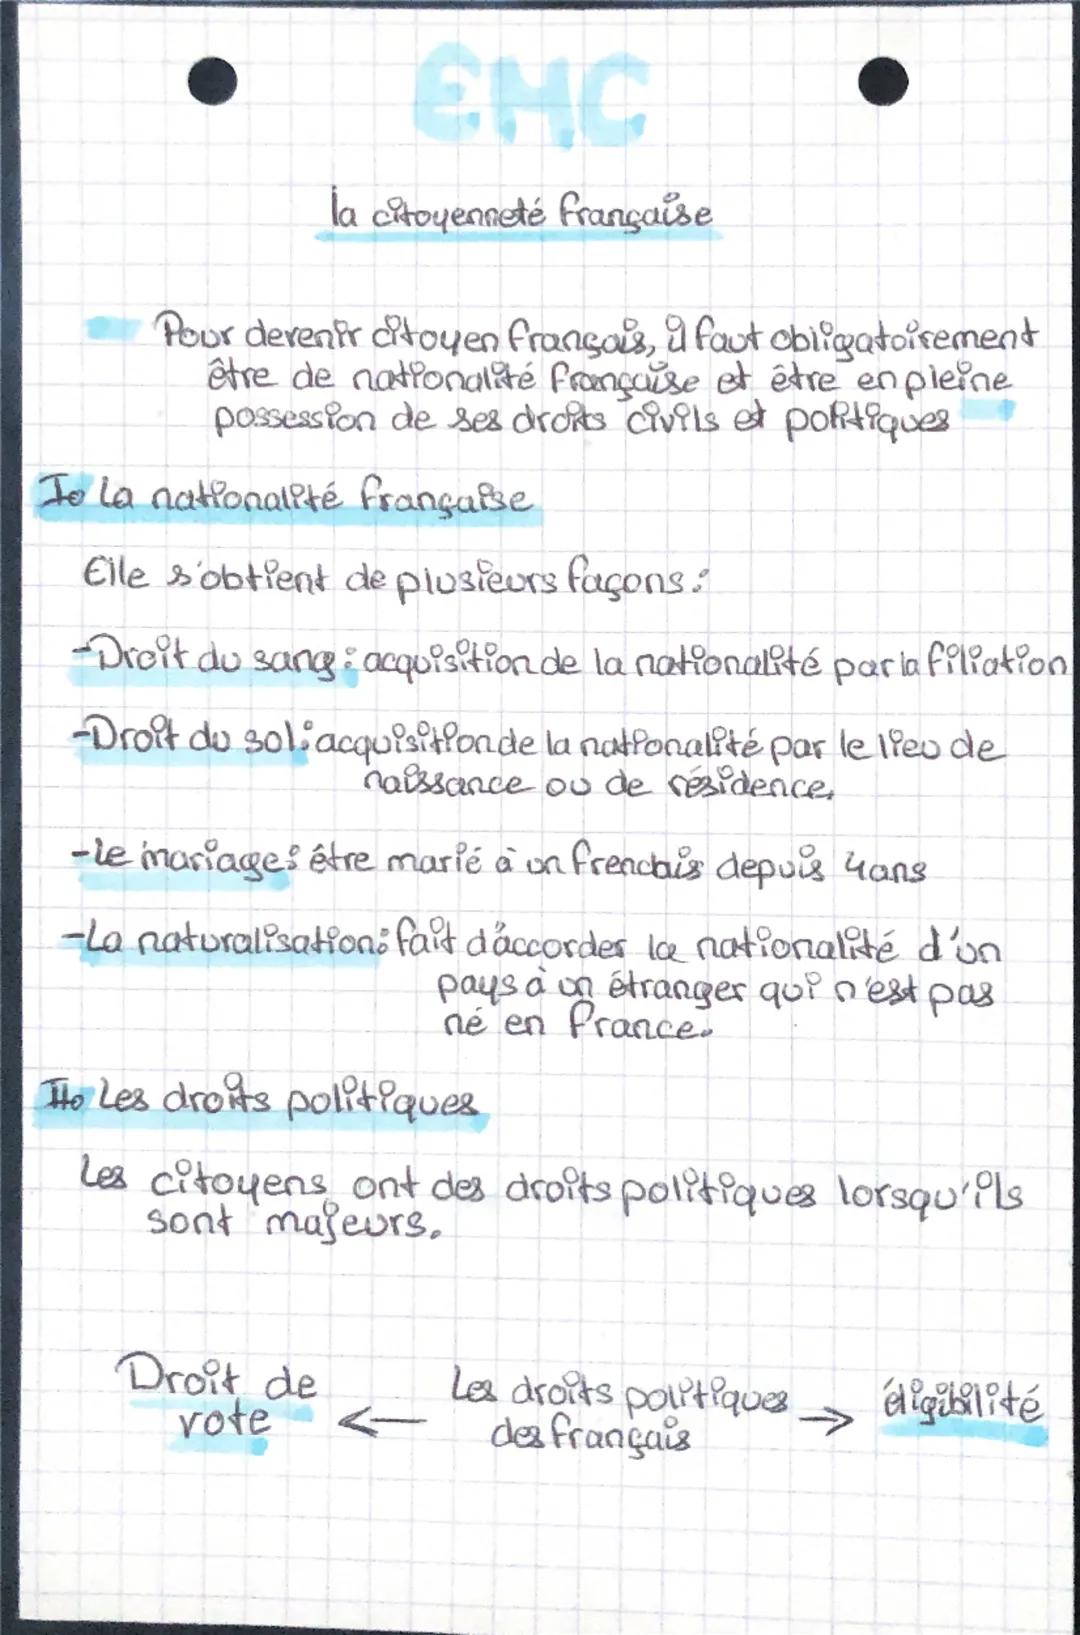 EMC
la citoyenneté française
Pour devenir citoyen français, il faut obligatoirement
être de nationalité française et être en pleine
possession de ses droits civils et politiques
I. La nationalité française
Elle s'obtient de plusieurs façons :
-Droit du sang : acquisition de la nationalité par la filiation
-Droit du sol : acquisition de la nationalité par le lieu de
naissance ou de résidence.
-Le mariage : être marié à un frencais depuis 4 ans
-La naturalisation : fait d'accorder la nationalité d'un
pays à un étranger qui n'est pas
né en France.
II. Les droits politiques
Les citoyens ont des droits politiques lorsqu'ils
sont majeurs.
Droit de
vote
<— Les droits politiques —>
des français
éligibilité